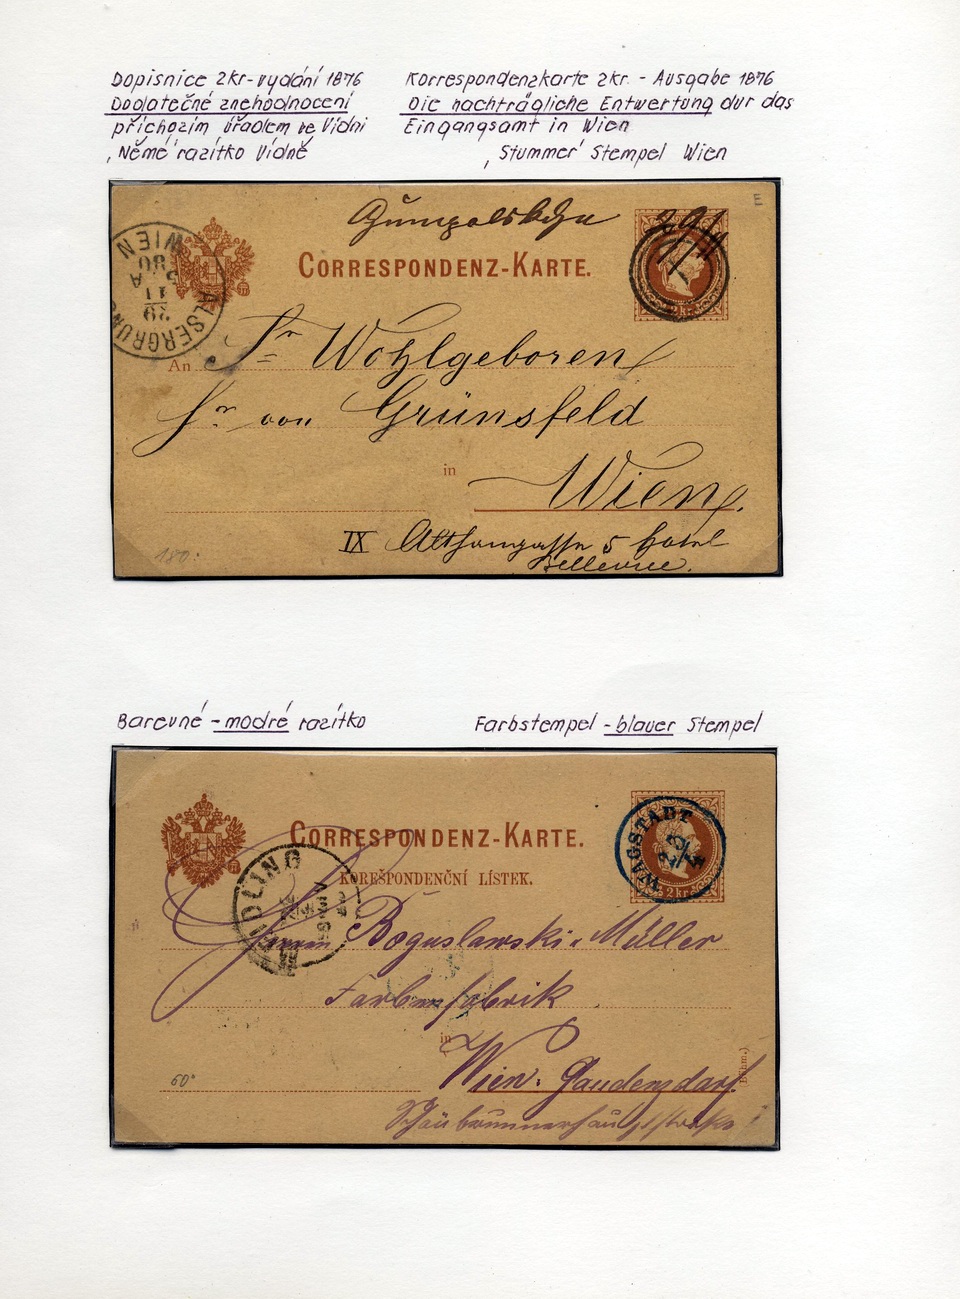 Dopisnice 2kr - vydání 1876
Dodatečné znehodnocení
příchozím úřadem ve Vídni
‚Němé' razítko Vídně
Korrespondenzkarte 2kr. - Ausgabe 1876
Die nachträgliche Entwertung dur das
Eingangsamt in Wien
‚Stummer' Stempel Wien
E
CORRESPONDENZ-KARTE.
29/11
2 kr.
WIEN
ALSERGRUND
29
11
80
5 A
An Sr Wohlgeboren
Hr von Grünsfeld
in Wien.
IX Althangasse 5 Hotel
Bellevue.
180:
Barevné - modré razítko
Farbstempel - blauer Stempel
CORRESPONDENZ-KARTE.
KOREŠPONDENČNÍ LÍSTEK.
WAGSTADT
2 kr.
MEIDLING
Herrn Boguslawski & Müller
Farbenfabrik
in Wien: Gaudenzdorf.
(Böhm.)
60°